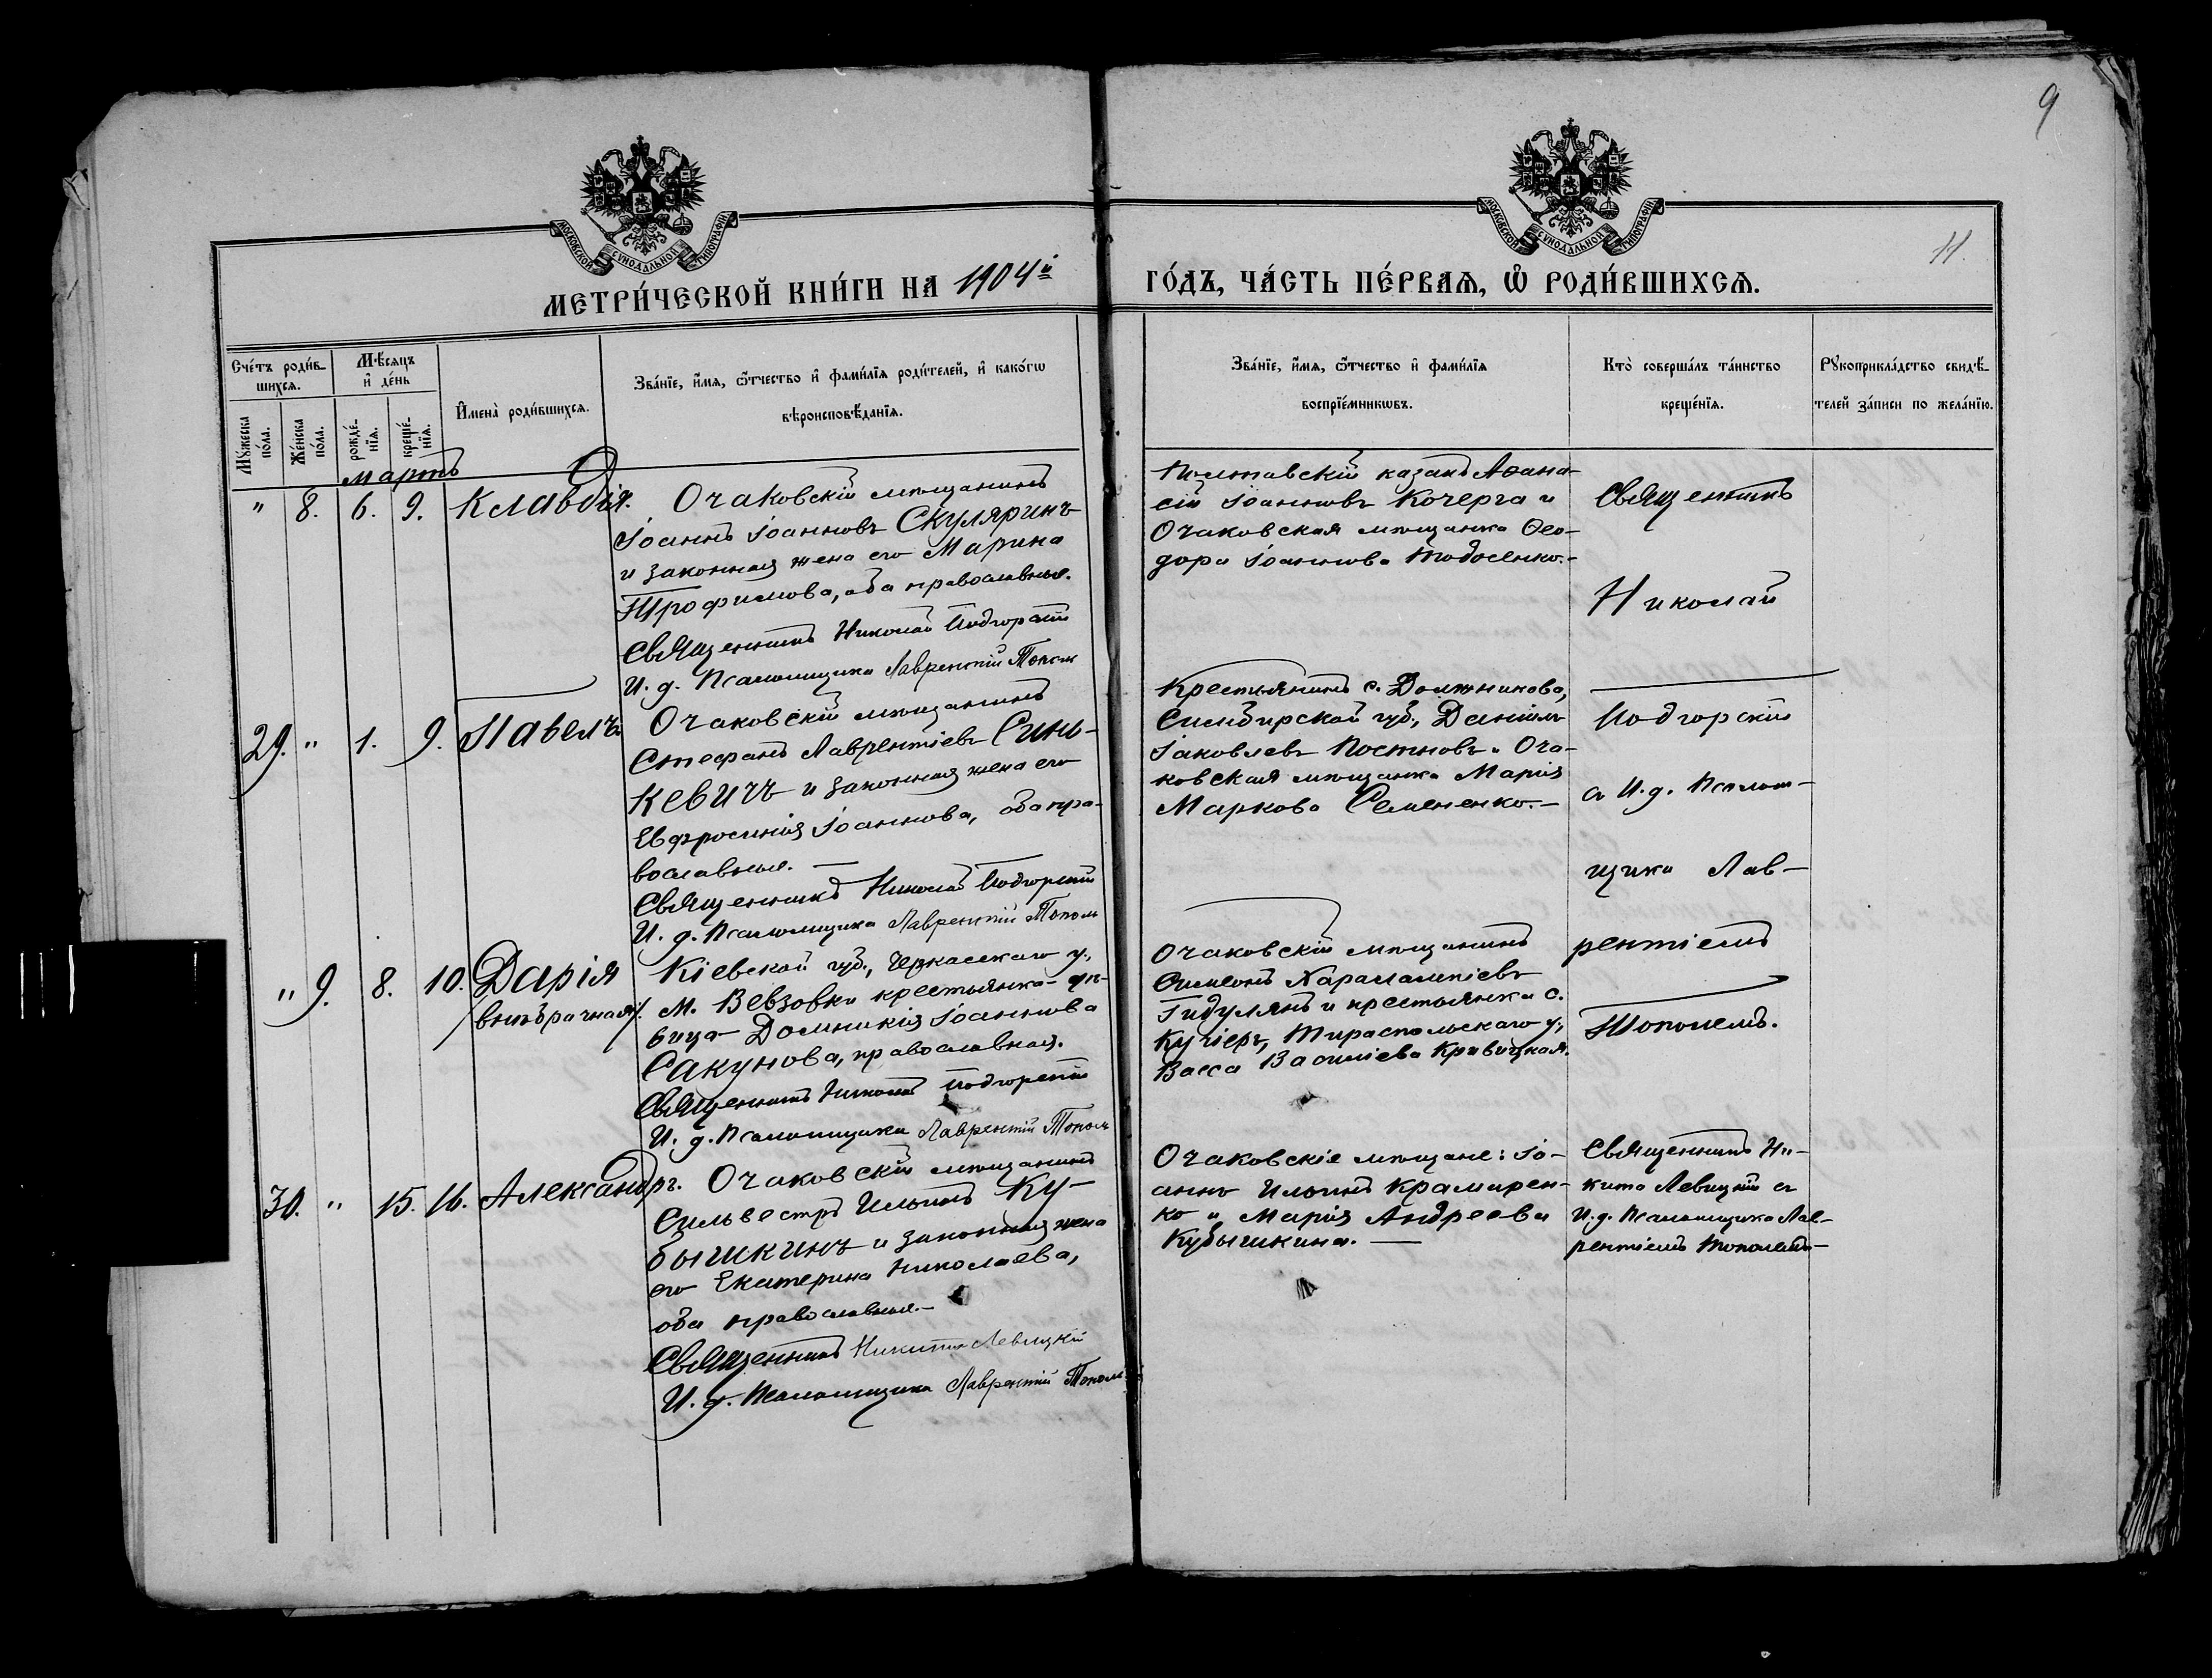 9
11.
МОСКОВСКОЙ СѴНОДАЛЬНОЙ ТИПОГРАФІИ
МОСКОВСКОЙ СѴНОДАЛЬНОЙ ТИПОГРАФІИ
МЕТРИ́ЧЕСКОЙ КНИ́ГИ НА 1904й ГО́ДЪ, ЧА́СТЬ ПЕ́РВАѦ, Ѽ РОДИ́ВШИХСѦ.
Сче́тъ роди́в-
шихсѧ.
Мѣ́сѧцъ
и҆ де́нь
Мꙋ́жеска
по́ла.
Же́нска
по́ла.
рожде́-
нїѧ.
креще́-
нїѧ.
И҆мена̀ роди́вшихсѧ.
Зва́нїе, и҆́мѧ, ѻ҆́тчество и҆ фами́лїѧ роди́телей, и҆ како́гѡ
вѣроисповѣ́данїѧ.
Зва́нїе, и҆́мѧ, ѻ҆́тчество и҆ фами́лїѧ
воспрїе́мникѡвъ.
Кто̀ соверша́лъ та́инство
креще́нїѧ.
Рꙋкоприкла́дство свидѣ́-
телей за́писи по жела́нїю.
мартъ
" 8. 6. 9. Клавдія.
Очаковскій мѣщанинъ
Іоаннъ Іоанновъ Скуляринъ
и законная жена его Марина
Трофимова, оба православные.
Священникъ Николай Подгорскій
И. д. Псаломщика Лаврентій Тополь
Полтавскій казакъ Аѳана-
сій Іоанновъ Кочерга и
Очаковская мѣщанка Ѳео-
дора Іоаннова Тодосенко.-
Священникъ
Николай
29. " 1. 9. Павелъ
Очаковскій мѣщанинъ
Стефанъ Лаврентіевъ Синь-
кевичъ и законная жена его
Евфросинія Іоаннова, оба пра-
вославные. —
Священникъ Николай Подгорскій
И. д. Псаломщика Лаврентій Тополь
Крестьянинъ с. Должникова,
Симбирской губ., Даніилъ
Іаковлевъ Постновъ и Оча-
ковская мѣщанка Марія
Маркова Семененко.—
Подгорскій
съ И. д. Псалом-
щика Лав-
рентіемъ
Тополемъ.
" 9. 8. 10. Дарія
/внѣбрачная/.
Кіевской губ., Черкасскаго у.,
м. Вевзовки крестьянка-дѣ-
вица Домникія Іоаннова
Сакунова, православная.
Священникъ Николай Подгорскій
И. д. Псаломщика Лаврентій Тополь
Очаковскій мѣщанинъ
Симеонъ Харалампіевъ
Гидулянъ и крестьянка с.
Кучіеръ, Тираспольскаго у.,
Васса Васильева Кривицкая.
30. " 15. 16. Александръ.
Очаковскій мѣщанинъ
Сильвестръ Ильинъ Ку-
бышкинъ и законная жена
его Екатерина Николаева,
оба православные.-
Священникъ Никита Левицкій
И. д. Псаломщика Лаврентій Тополь
Очаковскіе мѣщане: Іо-
аннъ Ильинъ Крамарен-
ко и Марія Андреева
Кубышкина. —
Священникъ Ни-
кита Левицкій съ
И. д. Псаломщика Лав-
рентіемъ Тополемъ-